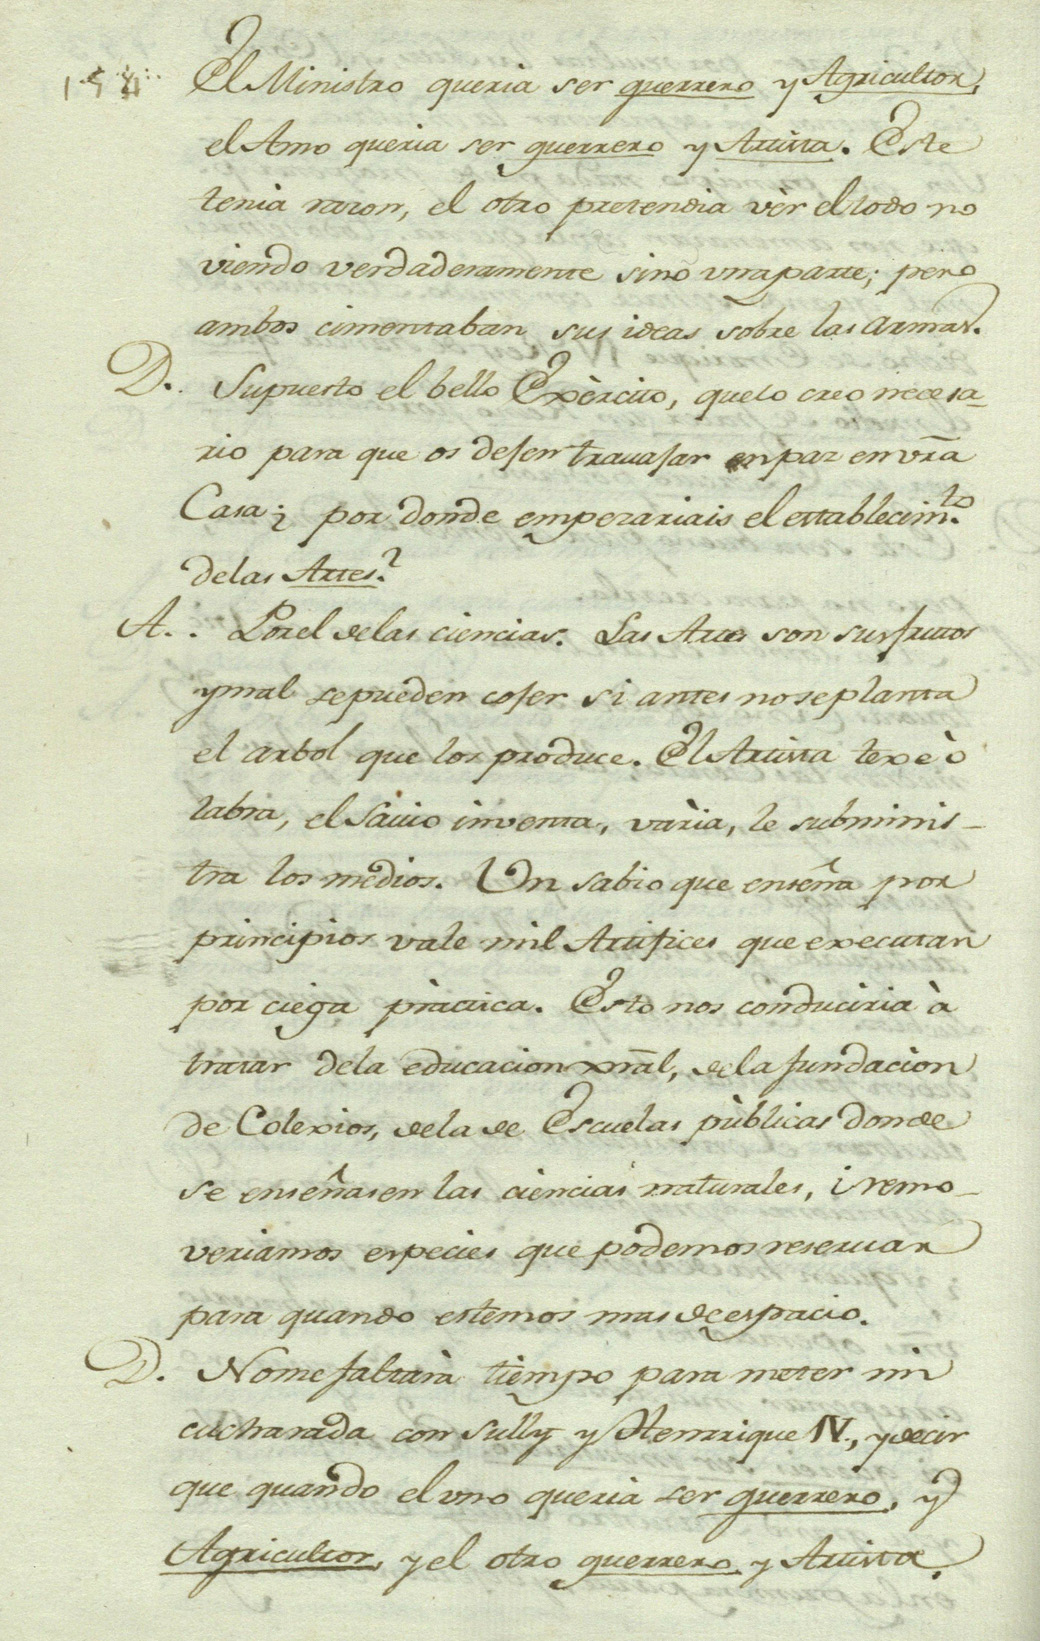 154 El Ministro queria ser guerrero y Agricultor,
el Amo queria ser guerrero y Artista. Este
tenia razon, el otro pretendia vèr el todo no
viendo verdaderamente sino una parte; pero
ambos cimentaban sus ideas sobre las armas.
D. Supuesto el bello Exèrcito, que lo creo necesa-
rio para que os dejen travajar en paz en vr̃a
Casa; ¿por donde empezariais el establecim.to
de las Artes?
A. Por el de las ciencias. Las Artes son sus frutos
y mal se pueden cojer si antes no se planta
el arbol que los produce. El Artista texe ò
labra, el Savio inventa, vària, le subminis-
tra los medios. Un sabio que enseña por
principios vale mil Artifices que executan
por ciega pràctica. Esto nos conduciria à
tratar de la educacion xnãl, de la fundacion
de Colexios, de la de Escuelas pùblicas donde
se enseñasen las ciencias naturales, i remo-
veriamos especies que podemos reservar
para quando estemos mas de espacio.
D. No me faltarà tiempo para meter mi
cucharada con Sully y Henrrique IV., y decir
que quando el uno queria ser guerrero, y
Agricultor, y el otro guerrero y Artista,